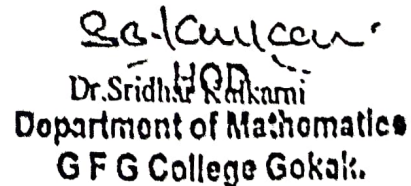 HOD
Dr.Sridhar Kulkarni
Department of Mathematics
G F G College Gokak.